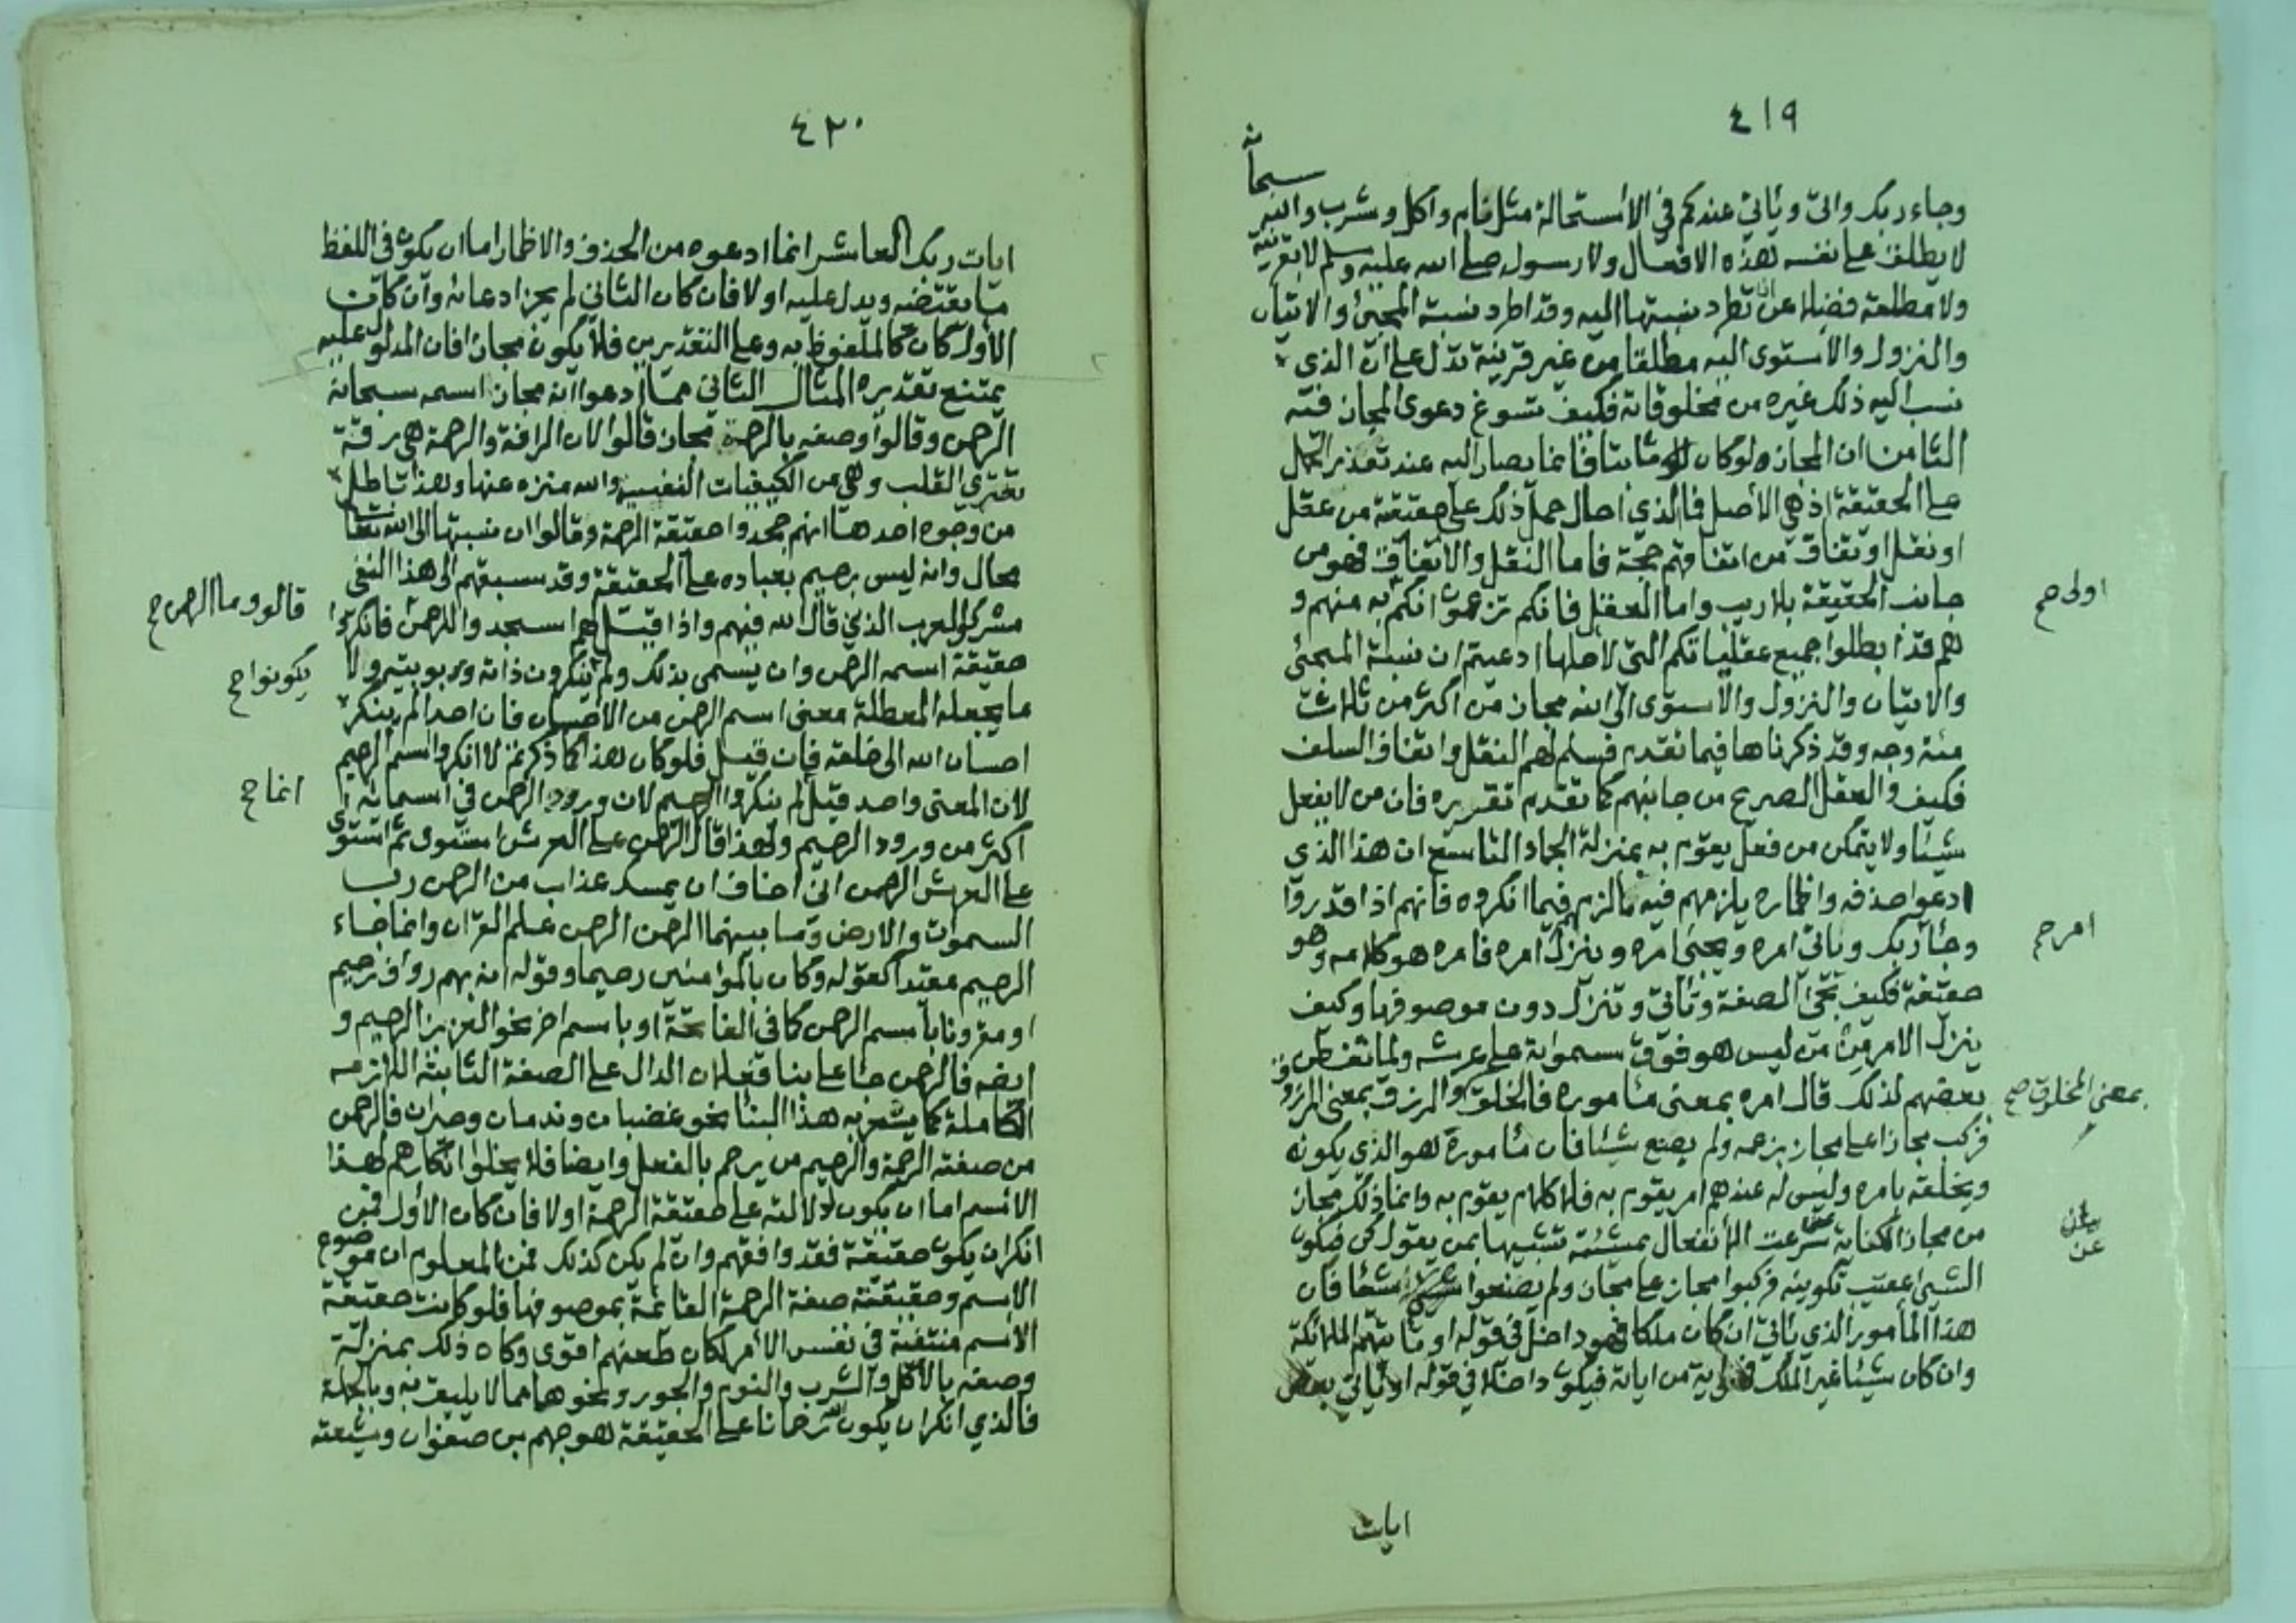 ٤١٩
سبحانه
وجاء ربك واتى وياتي عندكم في الاستحالة مثل نام واكل وشرب والله
لا يطلق على نفسه هذه الافعال ولا رسوله صلى الله عليه وسلم لا بقرينة
ولا مطلقة فضلا عن ان تطرد نسبتها اليه وقد اطرد نسبة المجئ والاتيان
والنزول والاستوى اليه مطلقا من غير قرينة تدل على ان الذي
نسب اليه ذلك غيره من مخلوقاته فكيف تسوغ دعوى المجاز فيه
الثامن ان المجاز ولو كان ثابتا فانما يصار اليه عند تعذر الحمل
على الحقيقة اذ هي الاصل فالذي احال حمل ذلك على حقيقته من عقل
او نقل او اتفاق من اتفاقهم حجة فاما النقل والاتفاق فهو من
جانب الحقيقة بلا ريب واما العقل فانكم تزعمون انكم به منهم و
اولى صح
هم قد ابطلوا جميع عقلياتكم التي لاجلها ادعيتم ان نسبة المجئ
والاتيان والنزول والاستوى الى الله مجاز من اكثر من ثلاث
مئة وجه وقد ذكرناها فيما تقدم فسلم لهم النقل واتفاق السلف
فكيف والعقل الصريح من جانبهم كما تقدم تقريره فان من لا يفعل
شيئا ولا يتمكن من فعل يقوم به بمنزلة الجماد التاسع ان هذا الذي
ادعوا حذفه واظماره يلزمهم فيه ما لزمهم فيما انكروه فانهم اذا قدروا
وجاء ربك وياتي امره ويجئ امره وينزل امره فامره هو كلامه وهو
امر صح
حقيقة فكيف تجئ الصفة وتأتي وتنزل دون موصوفها وكيف
ينزل الامر ممن ليس هو فوق سمواته على عرشه ولما تفطن
بعضهم لذلك قال امره بمعنى مأموره فالخلق والرزق بمعنى المرزوق
بمعنى المخلوق صح
فركب مجازا على مجاز بزعمه ولم يصنع شيئا فان مأموره هو الذي يكونه
ويخلقه بامره وليس له عندهم امر يقوم به فلا كلام يقوم به وانما ذلك مجاز
من مجاز الكناية عن سرعة الانفعال بمشيئته تشبيها بمن يقول كن فيكون
عن
الشئ عقب تكوينه فركبوا مجاز على مجاز ولم يصنعوا شيئا فان
هذا المأمور الذي يأتي ان كان ملكا فهو داخل في قوله او تأتيهم الملائكة
وان كان شيئا غير الملك فهو اية من اياته فيكون داخلا في قوله او يأتي بعض
ايات
٤٢٠
ايات ربك العاشر انما ادعوه من الحذف والاظمار اما ان يكون في اللفظ
ما يقتضيه ويدل عليه او لا فان كان الثاني لم يجز ادعائه وان كان
الاول كان كالملفوظ به وعلى التقديرين فلا يكون مجازا فان المدلول عليه
يمتنع تقديره المثال الثاني مما ادعوا انه مجاز اسمه سبحانه
الرحمن وقالوا وصفه بالرحمة مجاز قالوا لان الرافة والرحمة هي رقة
تعتري القلب وهي من الكيفيات النفسية والله منزه عنها وهذا باطل
من وجوه احدها انهم جحدوا حقيقة الرحمة وقالوا ان نسبتها الى الله تعالى
محال وانه ليس برحيم بعباده على الحقيقة وقد سبقهم الى هذا النفي
مشركوا العرب الذين قال الله فيهم واذا قيل لهم اسجدوا للرحمن فانكروا
قالوا وما الرحمن صح
حقيقة اسمه الرحمن وان يسمى بذلك ولم ينكرون ذاته وربوبيته ولا
يكونوا صح
ما يجعله المعطلة معنى اسم الرحمن من الاحسان فان احدا لم ينكر
احسان الله الى خلقه فان قيل فلو كان هذا كما ذكرتم لانكروا اسم الرحيم
لان المعنى واحد قيل لم ينكروا الرحيم لان ورود الرحمن في اسمائه
انما صح
اكثر من ورود الرحيم ولهذا قال الرحمن على العرش استوى ثم استوى
على العرش الرحمن اني اخاف ان يمسك عذاب من الرحمن رب
السموات والارض وما بينهما الرحمن الرحمن علم القران وانما جاء
الرحيم مقيدا كقوله وكان بالمؤمنين رحيما وقوله انه بهم رؤف رحيم
او مقرونا باسم الرحمن كما في الفاتحة او باسم اخر نحو العزيز الرحيم و
ايضا فالرحمن جاء على بناء فعلان الدال على الصفة الثابتة اللازمه
الكاملة كما يشعر به هذا البناء نحو غضبان وندمان وحيران فالرحمن
من صفته الرحمة والرحيم من يرحم بالفعل وايضا فلا يخلوا انكارهم لهذا
الاسم اما ان يكون لدلالته على حقيقة الرحمة او لا فان كان الاول فمن
انكر ان يكون حقيقة فقد وافقهم وان لم يكن كذلك فمن المعلوم ان موضوع
الاسم وحقيقته صفة الرحمة القائمة بموصوفها فلو كانت حقيقة
الاسم منتفية في نفس الامر لكان طعنهم اقوى وكان ذلك بمنزلة
وصفه بالاكل والشرب والنوم والجور ونحوها مما لا يليق به وبالجملة
فالذي انكر ان يكون الله رحمانا على الحقيقة هو جهم بن صفوان وشيعته